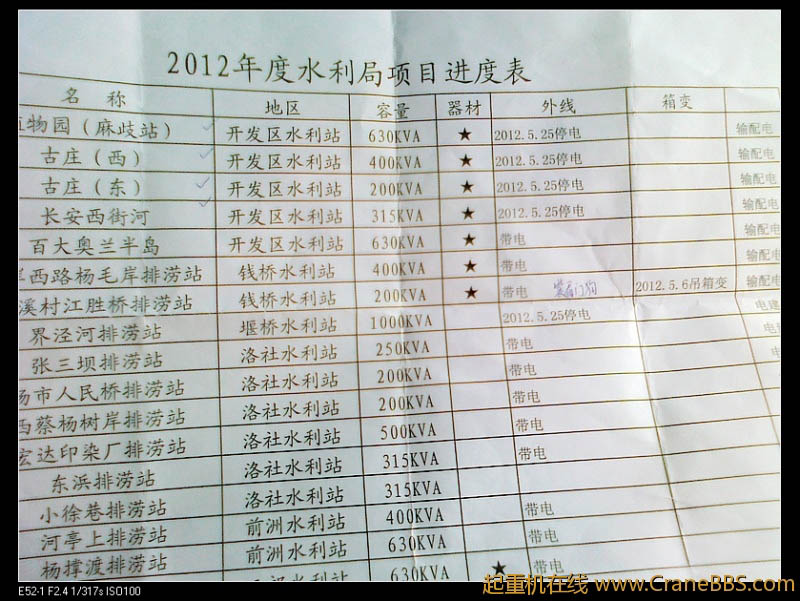 2012年度水利局项目进度表
名 称 地区 容量 器材 外线 箱变
植物园（麻歧站） 开发区水利站 630KVA ★ 2012.5.25停电 输配电
古庄（西） 开发区水利站 400KVA ★ 2012.5.25停电 输配电
古庄（东） 开发区水利站 200KVA ★ 2012.5.25停电 输配电
长安西街河 开发区水利站 315KVA ★ 2012.5.25停电 输配电
百大奥兰半岛 开发区水利站 630KVA ★ 带电 输配电
西路杨毛岸排涝站 钱桥水利站 400KVA ★ 带电 输配电
溪村江胜桥排涝站 钱桥水利站 200KVA ★ 带电 2012.5.6吊箱变 输配电
界泾河排涝站 堰桥水利站 1000KVA 2012.5.25停电 电建
张三坝排涝站 洛社水利站 250KVA 带电 电
市人民桥排涝站 洛社水利站 200KVA 带电 电
西蔡杨树岸排涝站 洛社水利站 200KVA 带电
宏达印染厂排涝站 洛社水利站 500KVA 带电
东浜排涝站 洛社水利站 315KVA 带电
小徐巷排涝站 洛社水利站 315KVA
河亭上排涝站 前洲水利站 400KVA 带电
杨撑渡排涝站 前洲水利站 630KVA 带电
水利站 630KVA ★ 带电
E52-1 F2.4 1/317s ISO100
起重机在线 www.CraneBBS.com